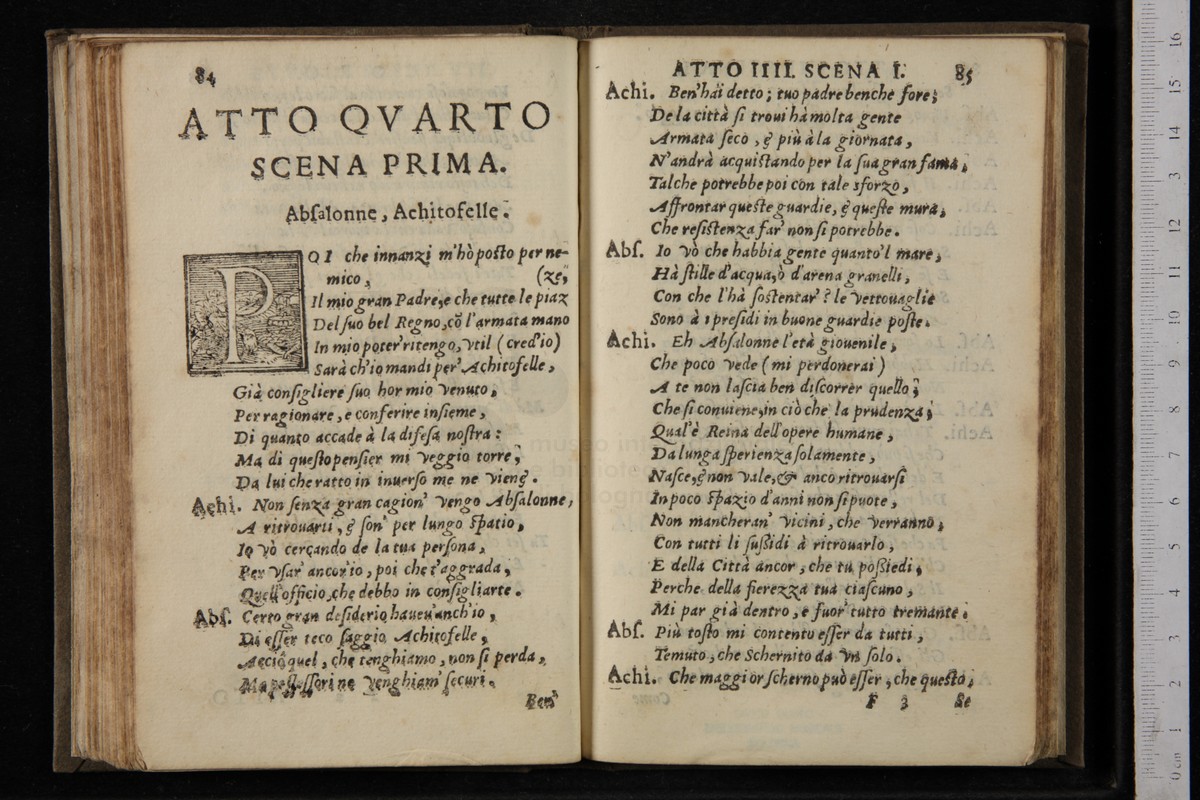 84
ATTO QVARTO
SCENA PRIMA.
Abſalonne, Achitofelle.
PRI che innanzi m'hò poſto per ne-
mico, (ze,
Il mio gran Padre, e che tutte le piaz
Del ſuo bel Regno, cõ l'armata mano
In mio poter' ritengo, vtil (cred'io)
Sarà ch'io mandi per' Achitofelle,
Già conſigliere ſuo hor mio venuto,
Per ragionare, e conferire inſieme,
Di quanto accade à la difeſa noſtra:
Ma di queſto penſier mi veggio torre,
Da lui che ratto in inuerſo me ne viene.
Achi. Non ſenza gran cagion' vengo Abſalonne,
A ritrouarti, & ſon' per lungo ſpatio,
Io vò cercando de la tua perſona,
Per vſar' ancor'io, poi che t'aggrada,
Quell'officio, che debbo in conſigliarte.
Abſ. Certo gran deſiderio haueu'anch'io,
Di eſſer teco ſaggio Achitofelle,
Acciò quel, che tenghiamo, non ſi perda,
venghiam' ſecuri.
Ben'
ATTO IIII. SCENA I. 85
Achi. Ben' hai detto; tuo padre benche fore;
De la città ſi troui hà molta gente
Armata ſeco, & più à la giornata,
N'andrà acquiſtando per la ſua gran fama,
Talche potrebbe poi con tale sforzo,
Affrontar queſte guardie, & queſte mura,
Che reſiſtenza far' non ſi potrebbe.
Abſ. Io vò che habbia gente quanto'l mare,
Hà ſtille d'acqua, ò d'arena granelli,
Con che l'hà ſoſtentar'? le vettouaglie
Sono à i preſidi in buone guardie poſte.
Achi. Eh Abſalonne l'età giouenile,
Che poco vede (mi perdonerai)
A te non laſcia ben diſcorrer quello;
Che ſi conuiene, in ciò che la prudenza;
Qual'è Reina dell'opere humane,
Da lunga ſperienza ſolamente,
Naſce, & non vale, & anco ritrouarſi
In poco ſpazio d'anni non ſi puote,
Non mancheran' vicini, che verranno,
Con tutti li ſuſsidi à ritrouarlo,
E della Città ancor, che tu poſsiedi,
Perche della fierezza tua ciaſcuno,
Mi par già dentro, e fuor' tutto tremante;
Abſ. Più toſto mi contento eſſer da tutti,
Temuto, che Schernito da vn ſolo.
Achi. Che maggior ſcherno può eſſer, che queſto,
F 3 Se